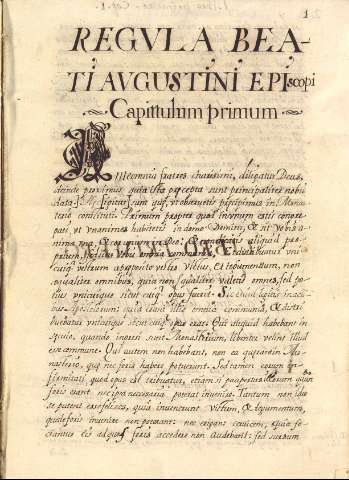 1
REGVLA BEA-
TI AVGVSTINI EPIscopi
Capittulum primum
Ante omnia fratres charissimi, diligatur Deus,
deinde proximus quia ista præcepta sunt principaliter nobis
data. Hæc igitur sunt quæ, ut observetis præcipimus in Monas-
terio constituti. Primum propter quod in unum estis congre-
gati ut unanimes habitetis in domo Domini, & sit vobis a-
nima una, & cor unum in Deo: & non dicatis aliquid pro-
prium, sed sint vobis omnia communia, & distribuatur uni-
cuiq vestrum a præposito vestro victus, & tegumentum, non
æqualiter omnibus, quia non æqualiter valetis omnes, sed po-
tius unicuique sicut cuiq opus fuerit. Sic enim legitis in acti-
bus Apostolorum: quia erant illis omnia communia, & distri-
buebatur unicuique sicut cuiq opus erat. Qui aliquid habebant in
sæculo, quando ingressi sunt Monasterium, libenter velint illud
esse commune. Qui autem non habebant, non ea quærant in Mo-
nasterio, quæ nec foris habere potuerunt. Sed tamen eorum in-
firmitati, quod opus est tribuatur, etiam si paupertas eorum quan
foris erant nec ipsa necessaria poterat invenire. Tantum non ideo
se putent esse felices, quia invenerunt victum, & tegumentum,
quale foris invenire non poterant: nec erigant cervicem, quia so-
ciantur eis ad quos foris accedere non audebant: sed sursum